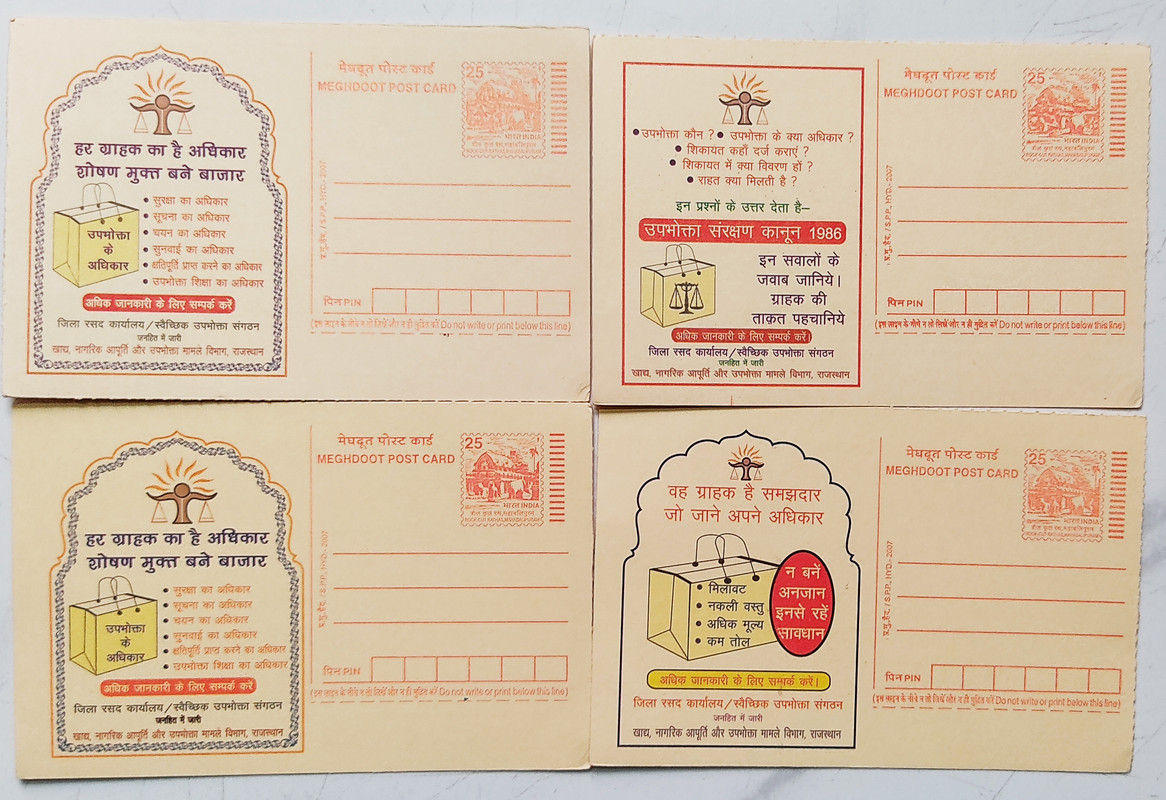 हर ग्राहक का है अधिकार
शोषण मुक्त बने बाजार
उपभोक्ता
के
अधिकार
• सुरक्षा का अधिकार
• सूचना का अधिकार
• चयन का अधिकार
• सुनवाई का अधिकार
• क्षतिपूर्ति प्राप्त करने का अधिकार
• उपभोक्ता शिक्षा का अधिकार
अधिक जानकारी के लिए सम्पर्क करें
जिला रसद कार्यालय/स्वैच्छिक उपभोक्ता संगठन
जनहित में जारी
खाद्य, नागरिक आपूर्ति और उपभोक्ता मामले विभाग, राजस्थान
मेघदूत पोस्ट कार्ड
MEGHDOOT POST CARD
25
भारत INDIA
प्र.मु.हैद. / S.P.P., HYD.- 2007
पिन PIN
(इस लाइन के नीचे न तो लिखें और न ही मुद्रित करें Do not write or print below this line)
• उपभोक्ता कौन ? • उपभोक्ता के क्या अधिकार ?
• शिकायत कहाँ दर्ज कराएं ?
• शिकायत में क्या विवरण हों ?
• राहत क्या मिलती है ?
इन प्रश्नों के उत्तर देता है–
उपभोक्ता संरक्षण कानून 1986
इन सवालों के
जवाब जानिये।
ग्राहक की
ताक़त पहचानिये
अधिक जानकारी के लिए सम्पर्क करें।
जिला रसद कार्यालय/स्वैच्छिक उपभोक्ता संगठन
जनहित में जारी
खाद्य, नागरिक आपूर्ति और उपभोक्ता मामले विभाग, राजस्थान
मेघदूत पोस्ट कार्ड
MEGHDOOT POST CARD
25
भारत INDIA
प्र.मु.हैद. / S.P.P., HYD.- 2007
पिन PIN
(इस लाइन के नीचे न तो लिखें और न ही मुद्रित करें Do not write or print below this line)
हर ग्राहक का है अधिकार
शोषण मुक्त बने बाजार
उपभोक्ता
के
अधिकार
• सुरक्षा का अधिकार
• सूचना का अधिकार
• चयन का अधिकार
• सुनवाई का अधिकार
• क्षतिपूर्ति प्राप्त करने का अधिकार
• उपभोक्ता शिक्षा का अधिकार
अधिक जानकारी के लिए सम्पर्क करें
जिला रसद कार्यालय/स्वैच्छिक उपभोक्ता संगठन
जनहित में जारी
खाद्य, नागरिक आपूर्ति और उपभोक्ता मामले विभाग, राजस्थान
मेघदूत पोस्ट कार्ड
MEGHDOOT POST CARD
25
भारत INDIA
प्र.मु.हैद. / S.P.P., HYD.- 2007
पिन PIN
(इस लाइन के नीचे न तो लिखें और न ही मुद्रित करें Do not write or print below this line)
वह ग्राहक है समझदार
जो जाने अपने अधिकार
• मिलावट
• नकली वस्तु
• अधिक मूल्य
• कम तोल
न बनें
अनजान
इनसे रहें
सावधान
अधिक जानकारी के लिए सम्पर्क करें।
जिला रसद कार्यालय/स्वैच्छिक उपभोक्ता संगठन
जनहित में जारी
खाद्य, नागरिक आपूर्ति और उपभोक्ता मामले विभाग, राजस्थान
मेघदूत पोस्ट कार्ड
MEGHDOOT POST CARD
25
भारत INDIA
प्र.मु.हैद. / S.P.P., HYD.- 2007
पिन PIN
(इस लाइन के नीचे न तो लिखें और न ही मुद्रित करें Do not write or print below this line)